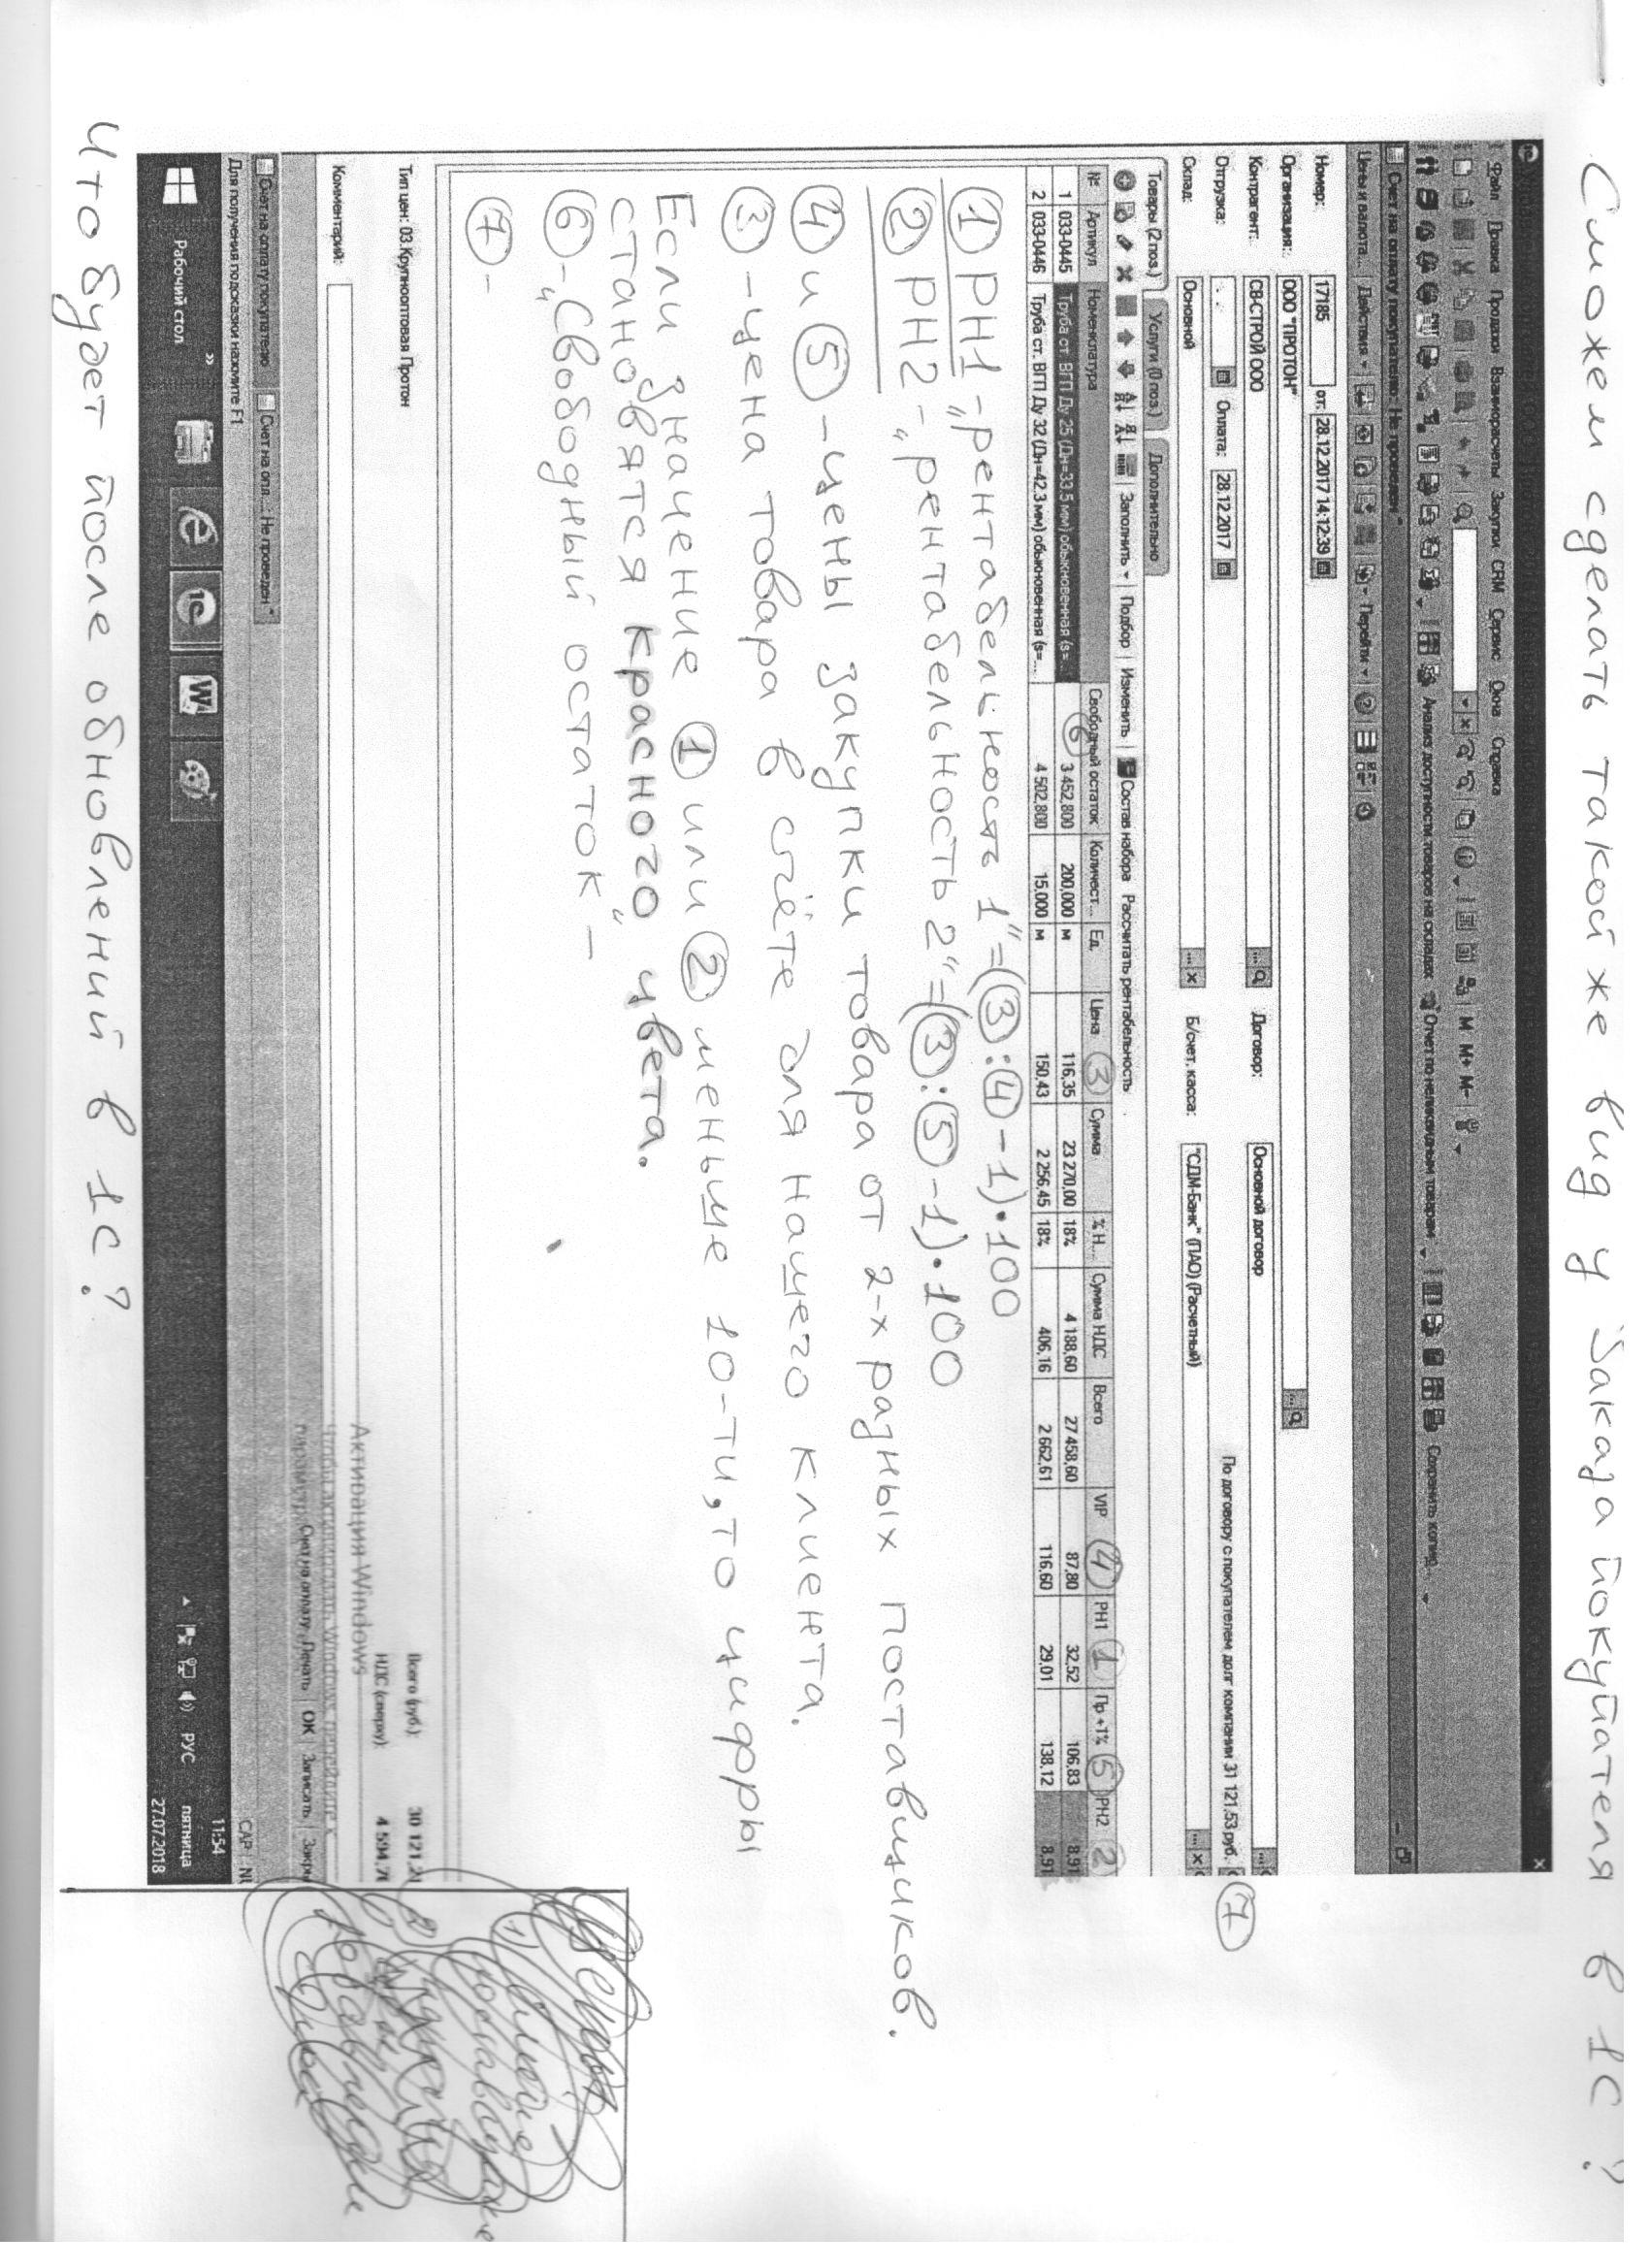 Сможем сделать такой же вид у Заказа покупателя в 1С?
Файл Правка Продажи Взаиморасчеты Закупки CRM Сервис Окна Справка
M M+ M-
Анализ доступности товаров на складах Отчет по неликвидным товарам Сохранить копию...
Счет на оплату покупателю: Не проведен *
Цены и валюта... Действия Перейти
Номер: 17185 от: 28.12.2017 14:12:39
Организация: ООО "ПРОТОН"
Контрагент: СВ-СТРОЙ ООО Договор: Основной договор
Отгрузка: . . Оплата: 28.12.2017 По договору с покупателем долг компании 31 121,53 руб. 7
Склад: Основной Б/счет, касса: "СДМ-Банк" (ПАО) (Расчетный)
Товары (2 поз.) Услуги (0 поз.) Дополнительно
Заполнить Подбор Изменить Состав набора Рассчитать рентабельность
№ Артикул Номенклатура Свободный остаток 6 Количест... Ед. Цена 3 Сумма % Н... Сумма НДС Всего VIP 4 РН1 1 Пр +1% 5 РН2 2
1 033-0445 Труба ст. ВГП Ду 25 (Дн=33,5 мм) обыкновенная (s=... 3 452,800 200,000 м 116,35 23 270,00 18% 4 188,60 27 458,60 87,80 32,52 106,83 8,91
2 033-0446 Труба ст. ВГП Ду 32 (Дн=42,3 мм) обыкновенная (s=... 4 502,800 15,000 м 150,43 2 256,45 18% 406,16 2 662,61 116,60 29,01 138,12 8,91
1 РН1 - „рентабельность 1" = (3 : 4 - 1) • 100
2 РН2 - „рентабельность 2" = (3 : 5 - 1) • 100
4 и 5 - цены закупки товара от 2-х разных поставщиков.
3 - цена товара в счёте для нашего клиента.
Если значение 1 или 2 меньше 10-ти, то цифры
становятся „красного" цвета.
6 - „Свободный остаток -
7 -
Тип цен: 03.Крупнооптовая Протон
Всего (руб.): 30 121,21
НДС (сверху): 4 594,76
Активация Windows
Чтобы активировать Windows, перейдите к
параметр
Комментарий:
Счет на оплату Печать ОК Записать Закр
Счет на оплату покупателю Счет на опл...: Не проведен *
Для получения подсказки нажмите F1 CAP NU
Рабочий стол » РУС 11:54
пятница
27.07.2018
Что будет после обновлений в 1С?